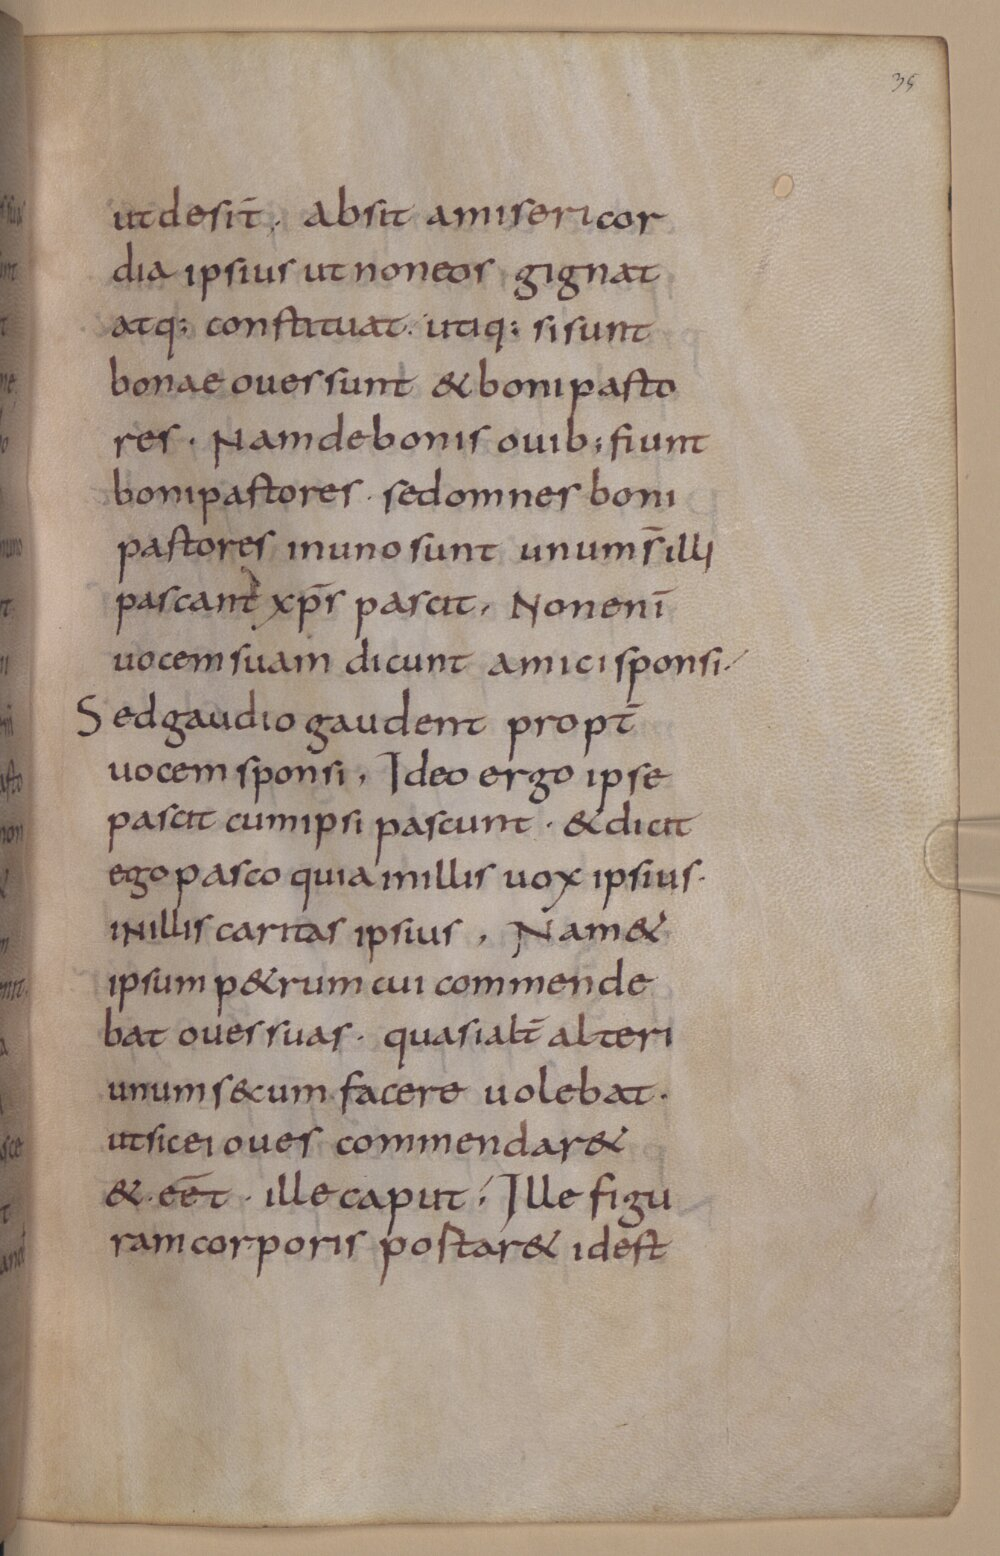 35
ut desiñt. Absit a misericor
dia ipsius ut non eos gignat
atq; constituat. utiq; si sunt
bonae oues sunt & boni pasto
res. Nam de bonis ouib; fiunt
boni pastores. sed omnes boni
pastores in uno sunt unum s̄ illi
pascant xp̄s pascit. Non enī
uocem suam dicunt amici sponsi.
Sed gaudio gaudent propt̄
uocem sponsi. Ideo ergo ipse
pascit cum ipsi pascunt. & dicit
ego pasco quia in illis uox ipsius.
in illis caritas ipsius. Nam &
ipsum p&rum cui commende
bat oues suas. quasi alt̄ alteri
unum s&cum facere uolebat.
ut sic ei oues commendar&
& eēt. ille caput. Ille figu
ram corporis postar& id est